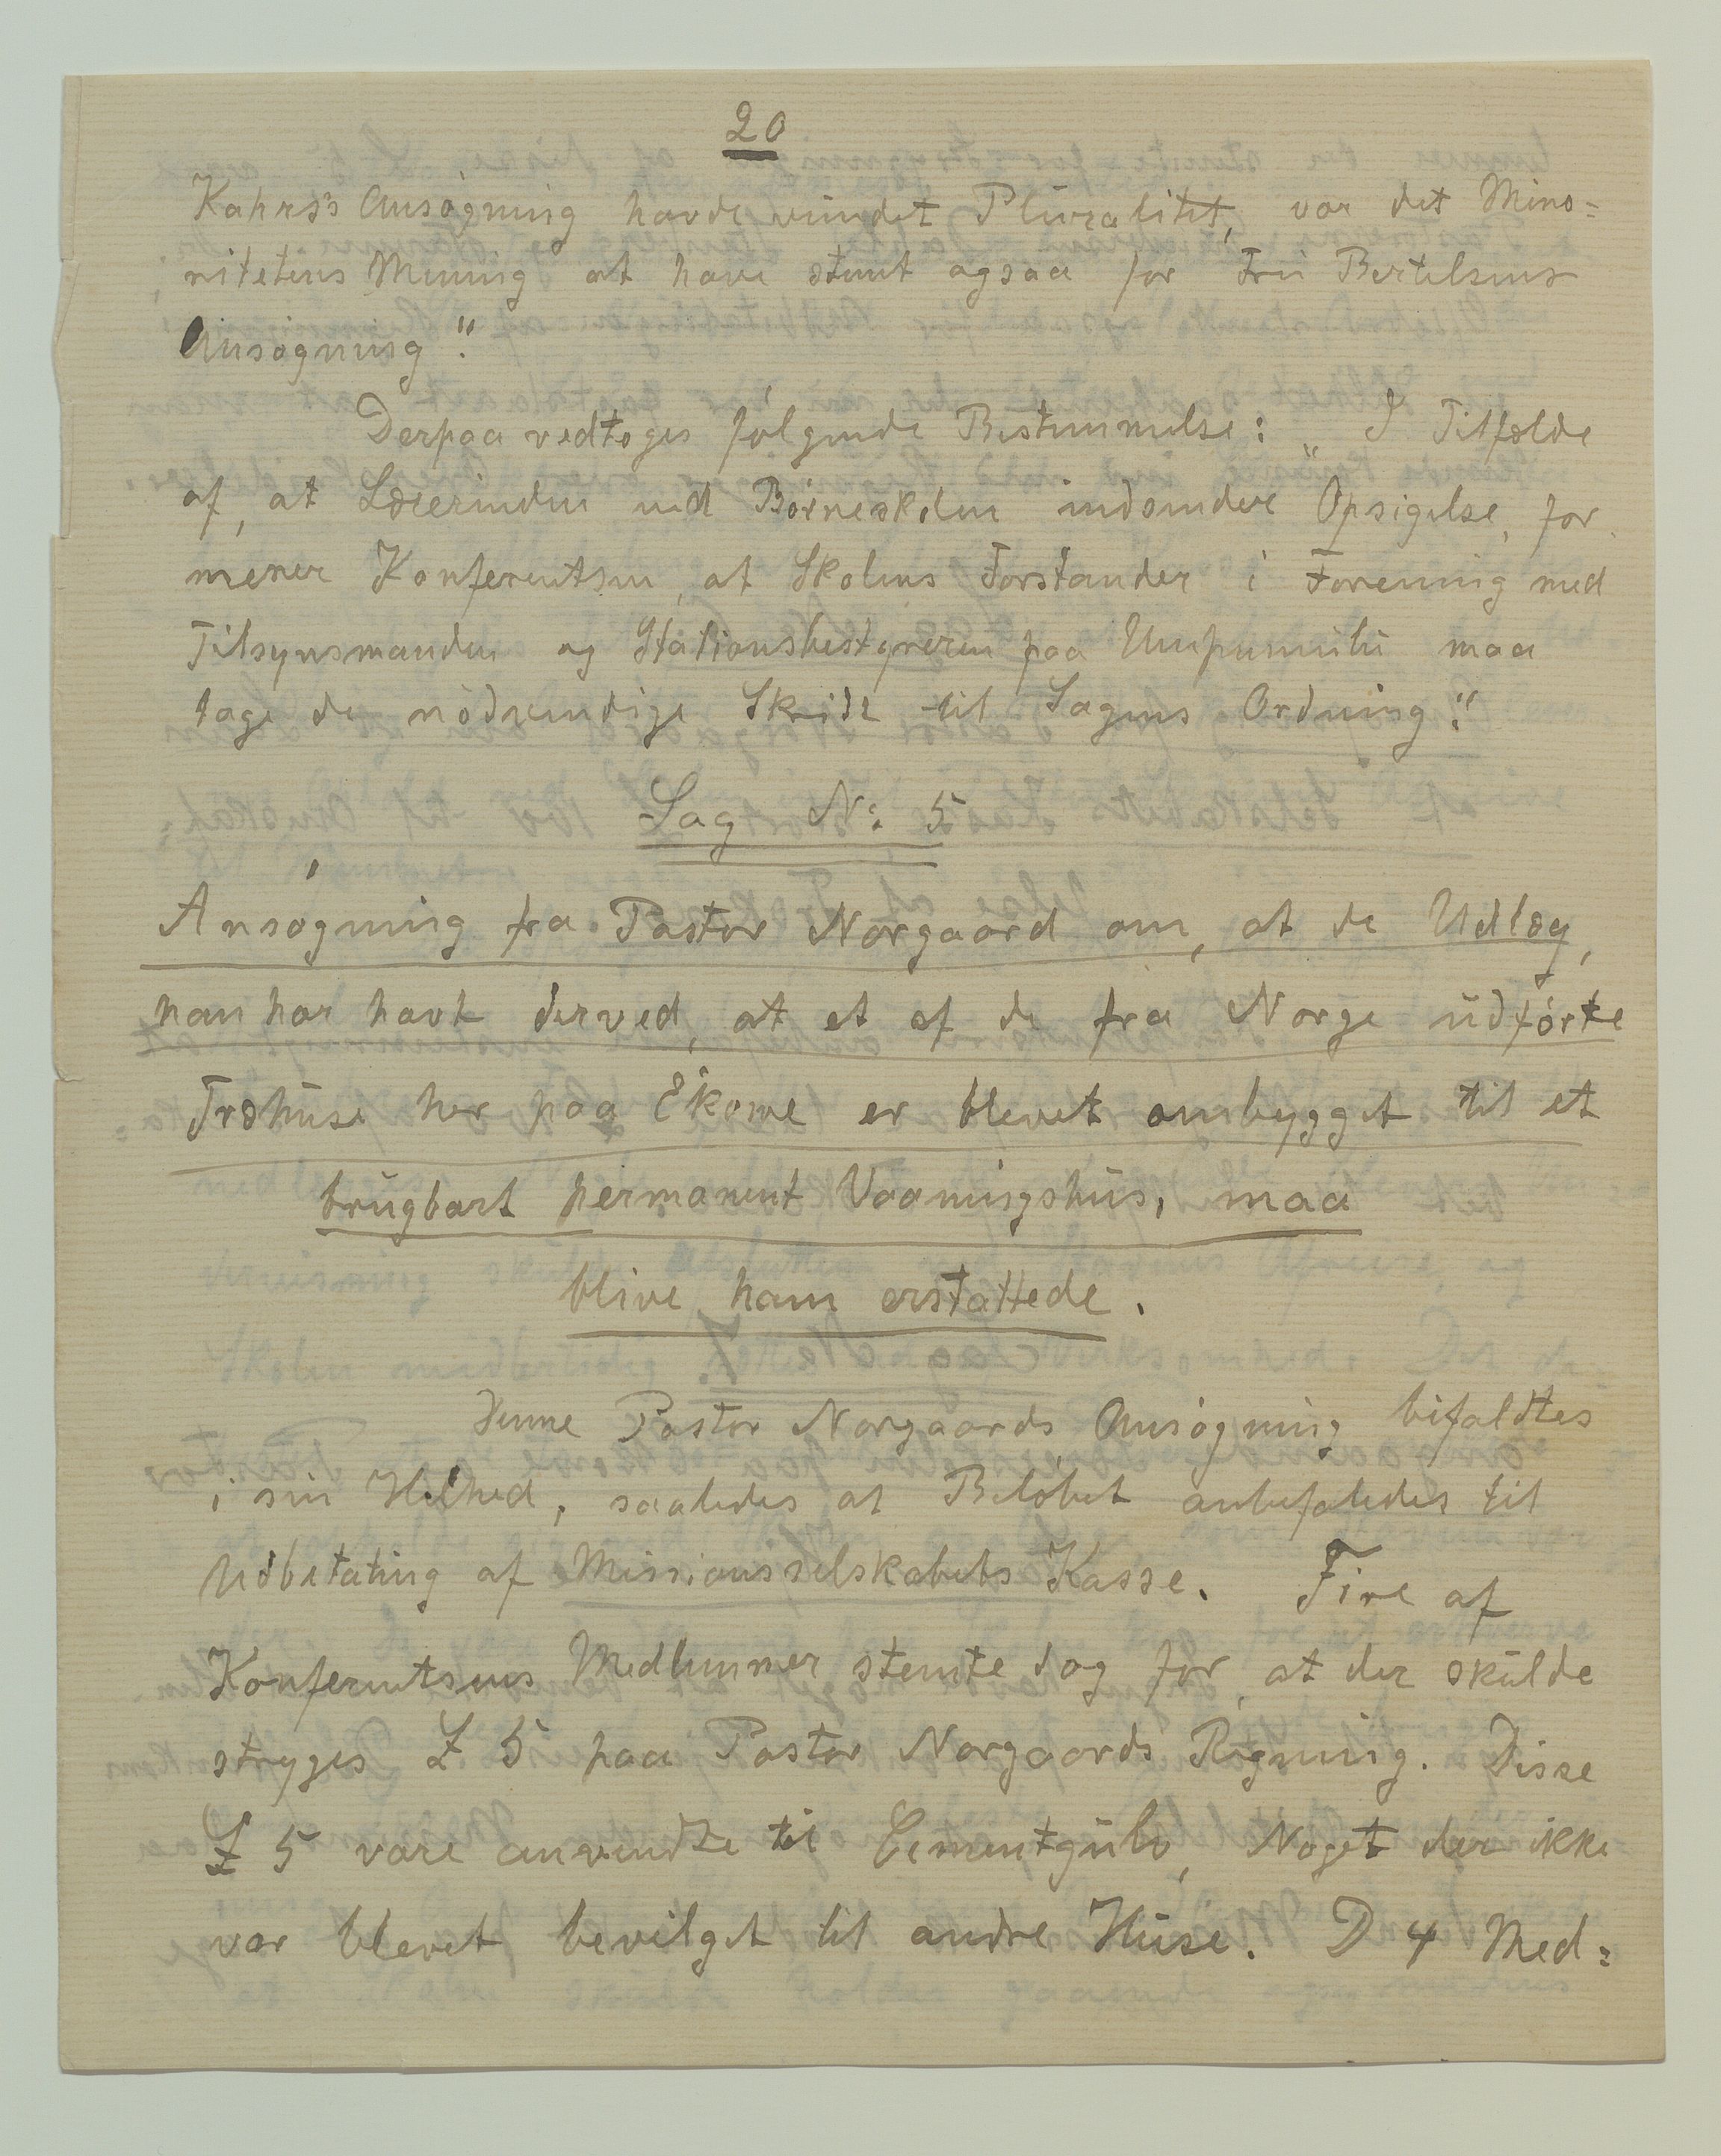 20
Kahrs's Ansøgning havde vundet Pluralitet, var det Mino=
ritetens Mening at have stemt ogsaa for Fru Bertelsens
Ansøgning".
Derpaa vedtoges følgende Bestemmelse: "I Tilfælde
af, at Lærerinden ved Børneskolen indsender Opsigelse, for
mener Konferentsen, at Skolens Forstander i Forening med
Tilsynsmanden og Stationsbestyreren paa Umpumulu maa
tage de nødvendige Skridt til Sagens Ordning".
Sag N: 5
Ansøgning fra Pastor Norgaard om, at de Udlæg,
han har havt derved, at et af de fra Norge udførte
Træhuse her paa Ekowe er blevet ombygget til et
brugbart permanent Vaaningshus, maa
blive ham erstattede.
Denne Pastor Norgaards Ansøgning bifaldtes
i sin Helhed, saaledes at Beløbet anbefaledes til
Udbetaling af Missionsselskabets Kasse. Fire af
Konferentsens Medlemmer stemte dog for, at der skulde
stryges £ 5 paa Pastor Norgaards Regning. Disse
£ 5 vare anvendte til Cementgulv, Noget der ikke
var blevet bevilget til andre Huse. D 4 Med=